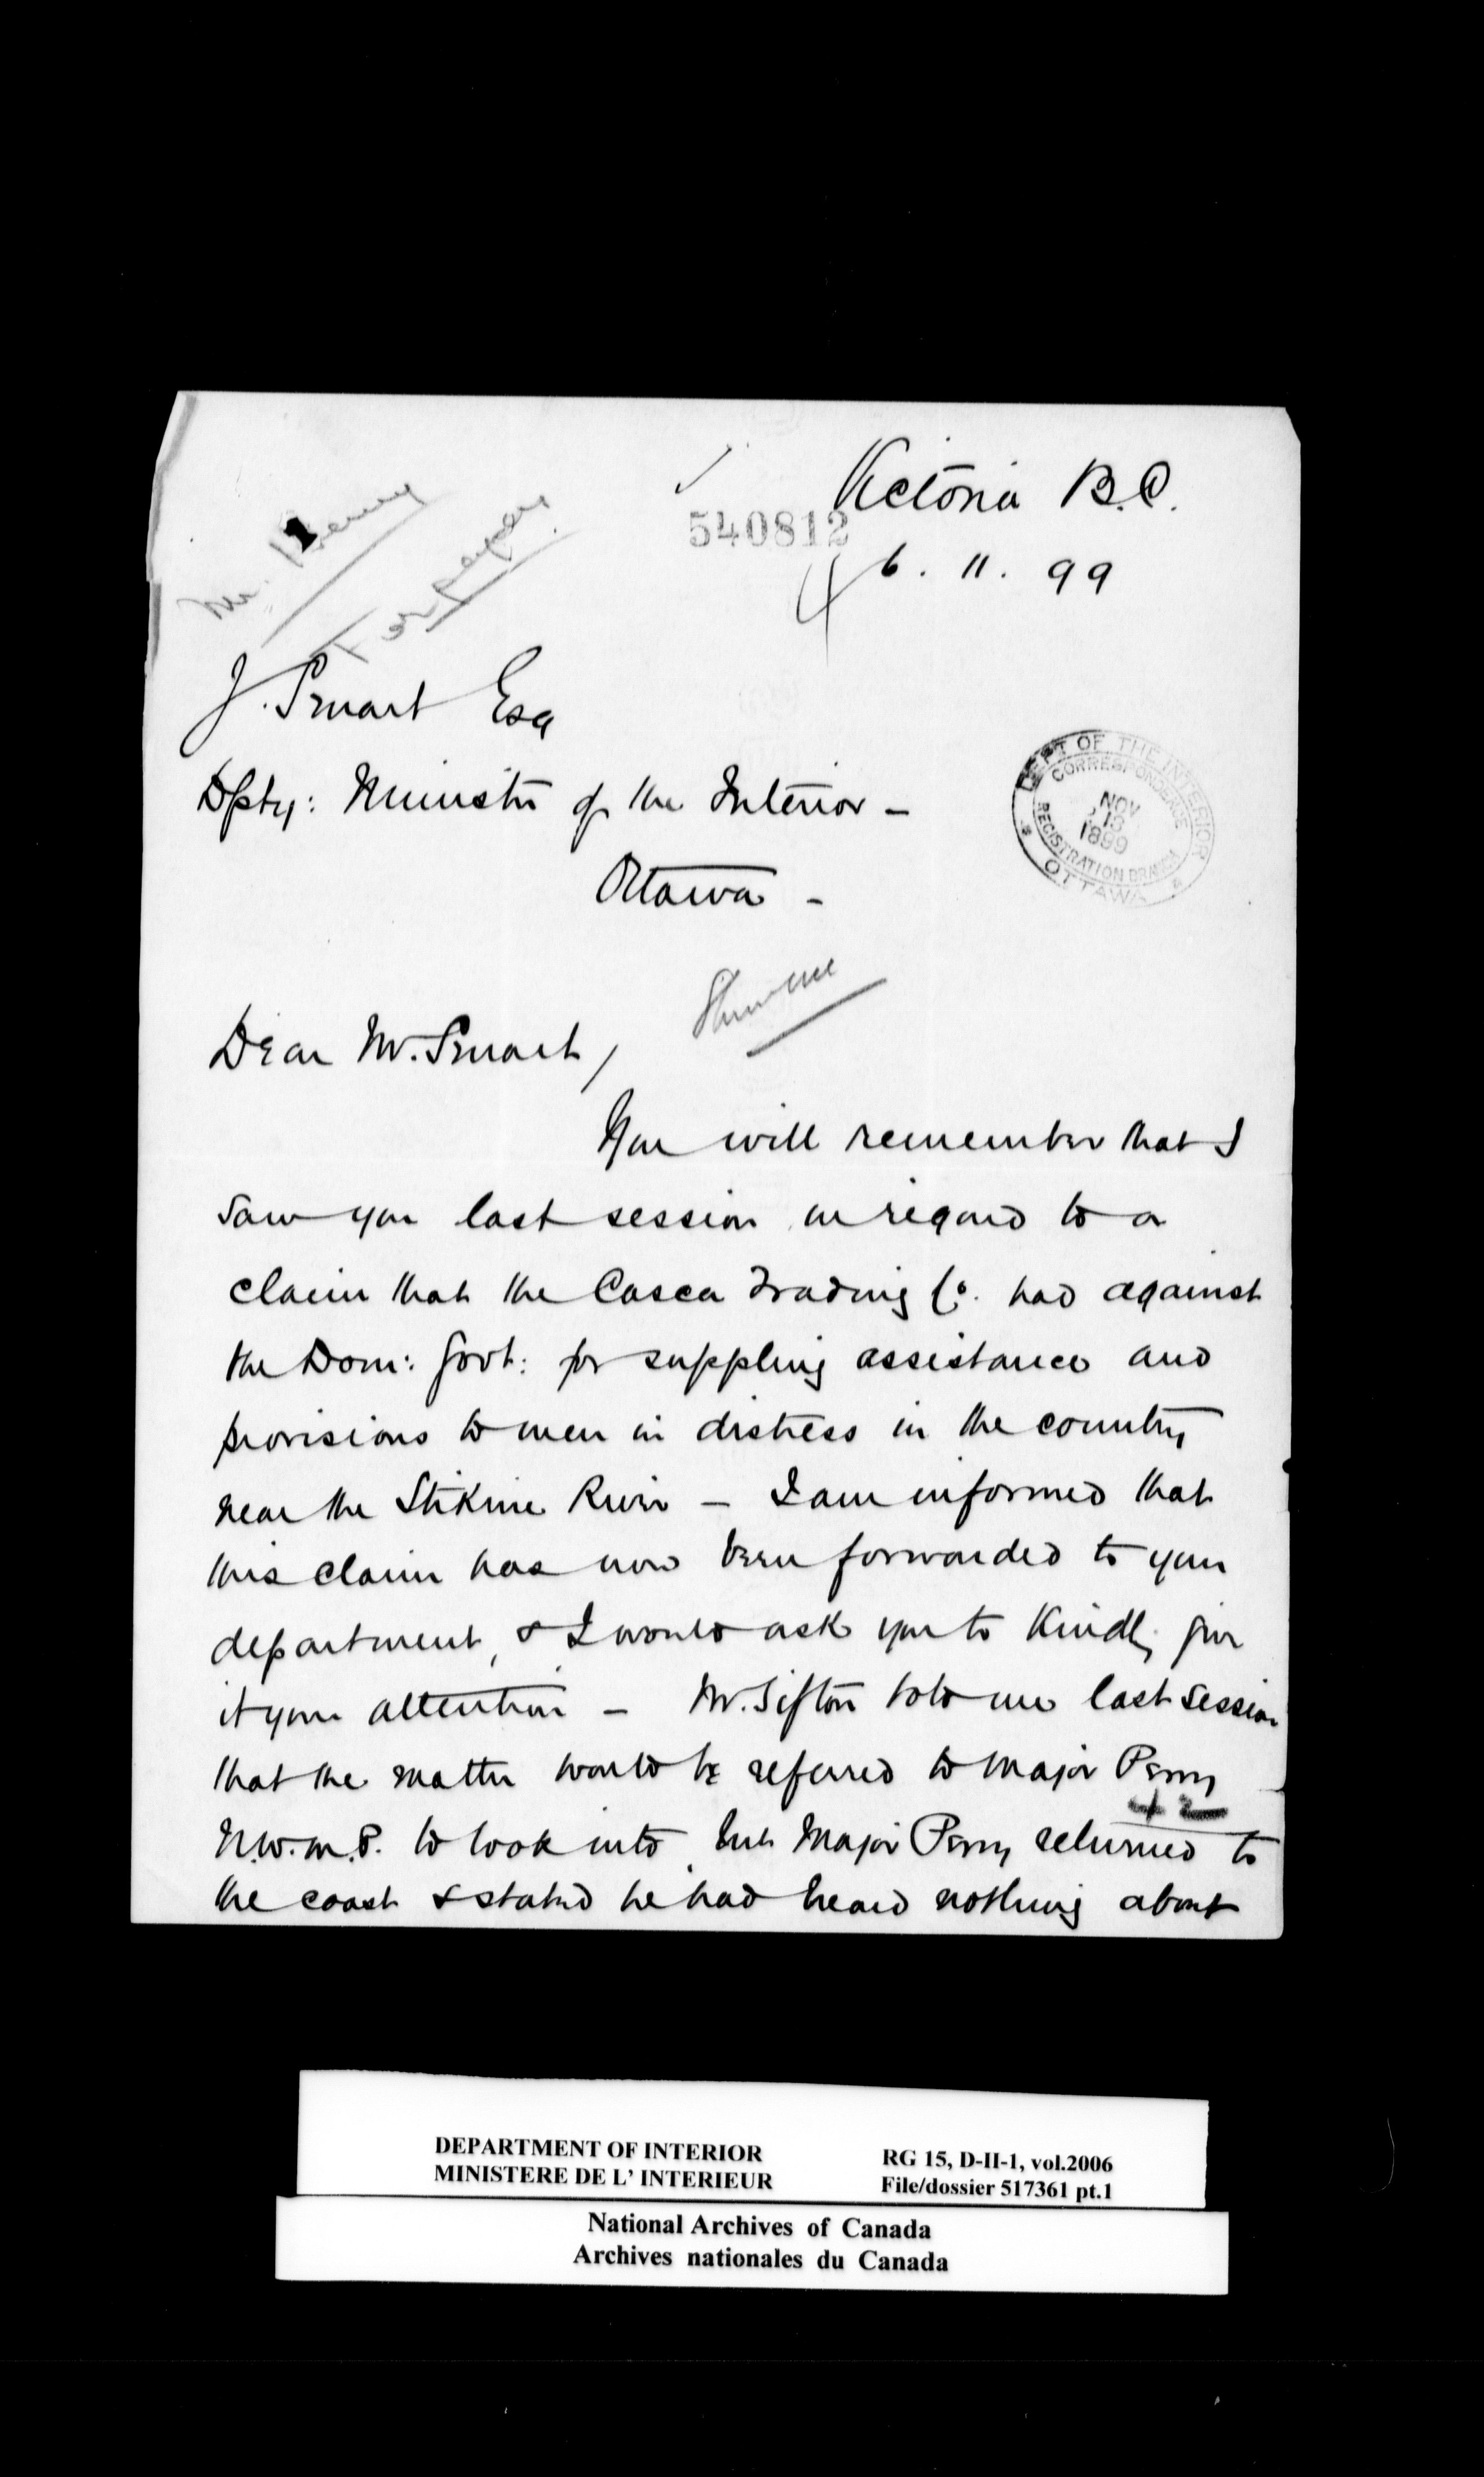 Victoria B.C.
540812
6. 11. 99
Mr.
For paper
J. Smart Esq
Dpty: Minister of the Interior -
Ottawa -
DEPT OF THE INTERIOR
CORRESPONDENCE
NOV
13
1899
REGISTRATION BRANCH
* OTTAWA *
Dear Mr. Smart,
You will remember that I
saw you last session in regard to a
claim that the Casca Trading Co. had against
the Dom: Govt: for suppling assistance and
provisions to men in distress in the country
near the Stikine River - I am informed that
this claim has now been forwarded to your
department, & I would ask you to Kindly give
it your attention - Mr. Sifton told me last session
that the matter would be referred to Major Perry
N.W.M.P. to look into, but Major Perry returned to
the coast & stated he had heard nothing about
DEPARTMENT OF INTERIOR
MINISTERE DE L' INTERIEUR
RG 15, D-II-1, vol.2006
File/dossier 517361 pt.1
National Archives of Canada
Archives nationales du Canada